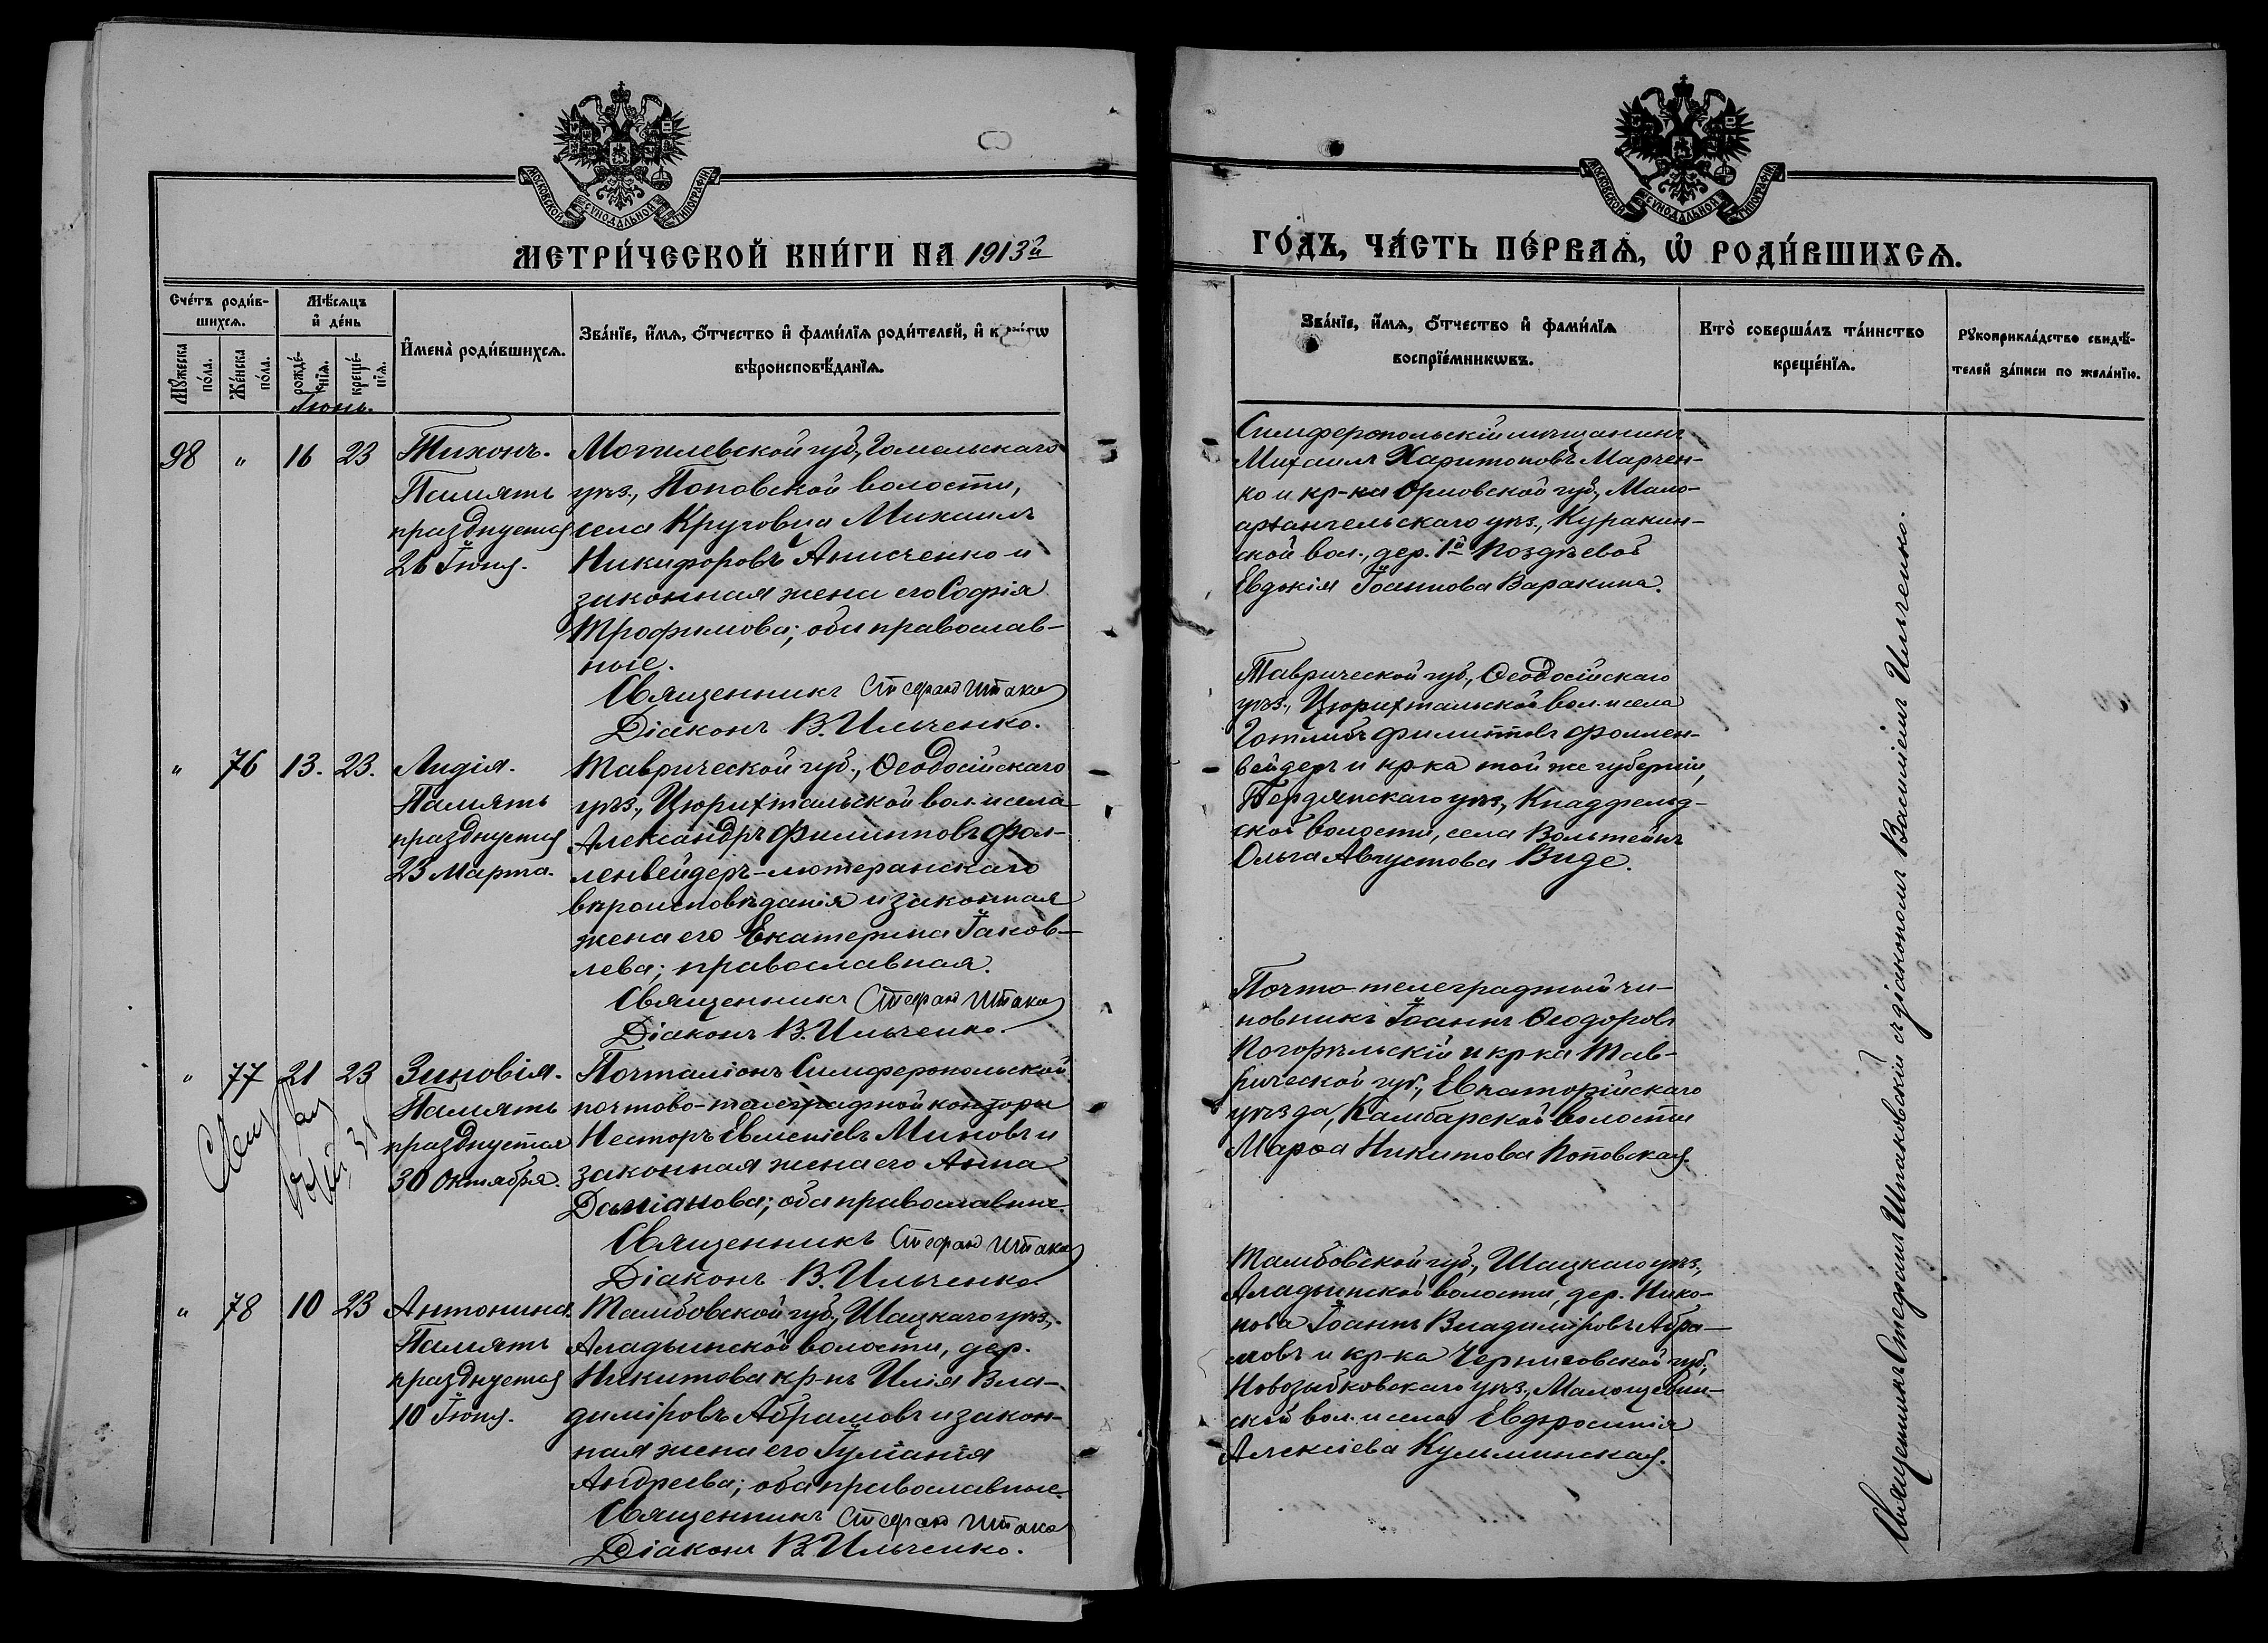 МОСКОВСКОЙ СѴНОДАЛЬНОЙ ТИПОГРАФІИ
МЕТРИ́ЧЕСКОЙ КНИ́ГИ НА 1913й
Сче́тъ роди́в-
шихсѧ.
Мѣ́сѧцъ
и҆ де́нь
Мꙋ́жеска
по́ла.
Же́нска
по́ла.
рожде́-
нїѧ.
креще́-
нїѧ.
И҆мена̀ роди́вшихсѧ.
Зва́нїе, и҆́мѧ, ѻ҆́тчество и҆ фами́лїѧ роди́телей, и҆ к
вѣроисповѣ́данїѧ.
Іюнь.
98 " 16 23
Тихонъ.
Память
празднуется
26 Іюня.
Могилевской губ., Гомельскаго
уѣз., Поповской волости,
села Круговца Михаилъ
Никифоровъ Анисченко и
законная жена его Софія
Трофимова; оба православ-
ные.
Священникъ Стефанъ Шпако
Діаконъ В. Ильченко.
" 76 13. 23.
Лидія.
Память
празднуется
23 Марта.
Таврической губ., Ѳеодосійскаго
уѣз., Цюрихтальской вол. и села
Александръ Филипповъ Фол-
ленвейдеръ-лютеранскаго
вѣроисповѣданія и законная
жена его Екатерина Іаков-
лева; православная.
Священникъ Стефанъ Шпако
Діаконъ В. Ильченко.
" 77 21 23
Зиновія.
Память
празднуется
30 Октября.
Почталіонъ Симферопольской
почтово-телеграфной конторы
Несторъ Евменіевъ Миновъ и
законная жена его Анна
Даміанова; оба православные.
Священникъ Стефанъ Шпако
Діаконъ В. Ильченко.
" 78 10 23
Антонина.
Память
празднуется
10 Іюня.
Тамбовской губ., Шацкаго уѣз.,
Аладьинской волости, дер.
Никитова кр-нъ Илія Вла-
диміровъ Абрамовъ и закон-
ная жена его Іуліанія
Андреева; оба православные.
Священникъ Стефанъ Шпако
Діаконъ В. Ильченко.
МОСКОВСКОЙ СѴНОДАЛЬНОЙ ТИПОГРАФІИ
ГО́ДЪ, ЧА́СТЬ ПЕ́РВАѦ, Ѡ҆ РОДИ́ВШИХСѦ.
Зва́нїе, и҆́мѧ, ѻ҆́тчество и҆ фами́лїѧ
воспрїе́мникѡвъ.
Кто̀ соверша́лъ та́инство
креще́нїѧ.
Рꙋкоприкла́дство свидѣ́-
телей за́писи по жела́нїю.
Симферопольскій мѣщанинъ
Михаилъ Харитоновъ Марчен-
ко и кр-ка Орловской губ., Мало-
архангельскаго уѣз., Куракин-
ской вол., дер. 1й Поздѣевой
Евдокія Іоаннова Варакина.
Таврической губ., Ѳеодосійскаго
уѣз., Цюрихтальской вол. и села
Готлибъ Филипповъ Фоллен-
вейдеръ и кр-ка той же губерніи,
Бердянскаго уѣз., Гнадфельд-
ской волости, села Вольтейнъ
Ольга Августова Виде.
Почто-телеграфный чи-
новникъ Іоаннъ Ѳеодоровъ
Погорѣльскій и кр-ка Тав-
рической губ., Евпаторійскаго
уѣзда, Камбарской волости
Марѳа Никитова Поповская.
Тамбовской губ., Шацкаго уѣз.,
Аладьинской волости, дер. Нико-
нова Іоаннъ Владиміровъ Абра-
мовъ и кр-ка Черниговской губ.,
Новозыбковскаго уѣз.,
ской вол. и села Евфросинія
Алексіева Кульминская.
Священникъ Стефанъ Шпаковскій съ діакономъ Василіемъ Ильченко.